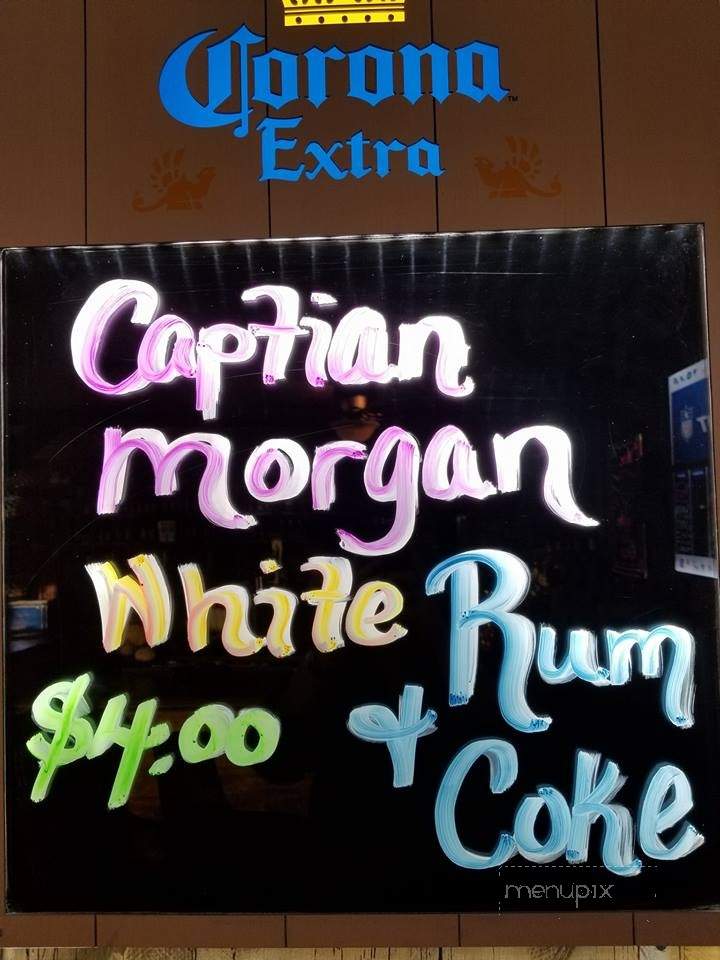 Corona
Extra
Captian
morgan
White Rum
$4.00 &
Coke
menupix